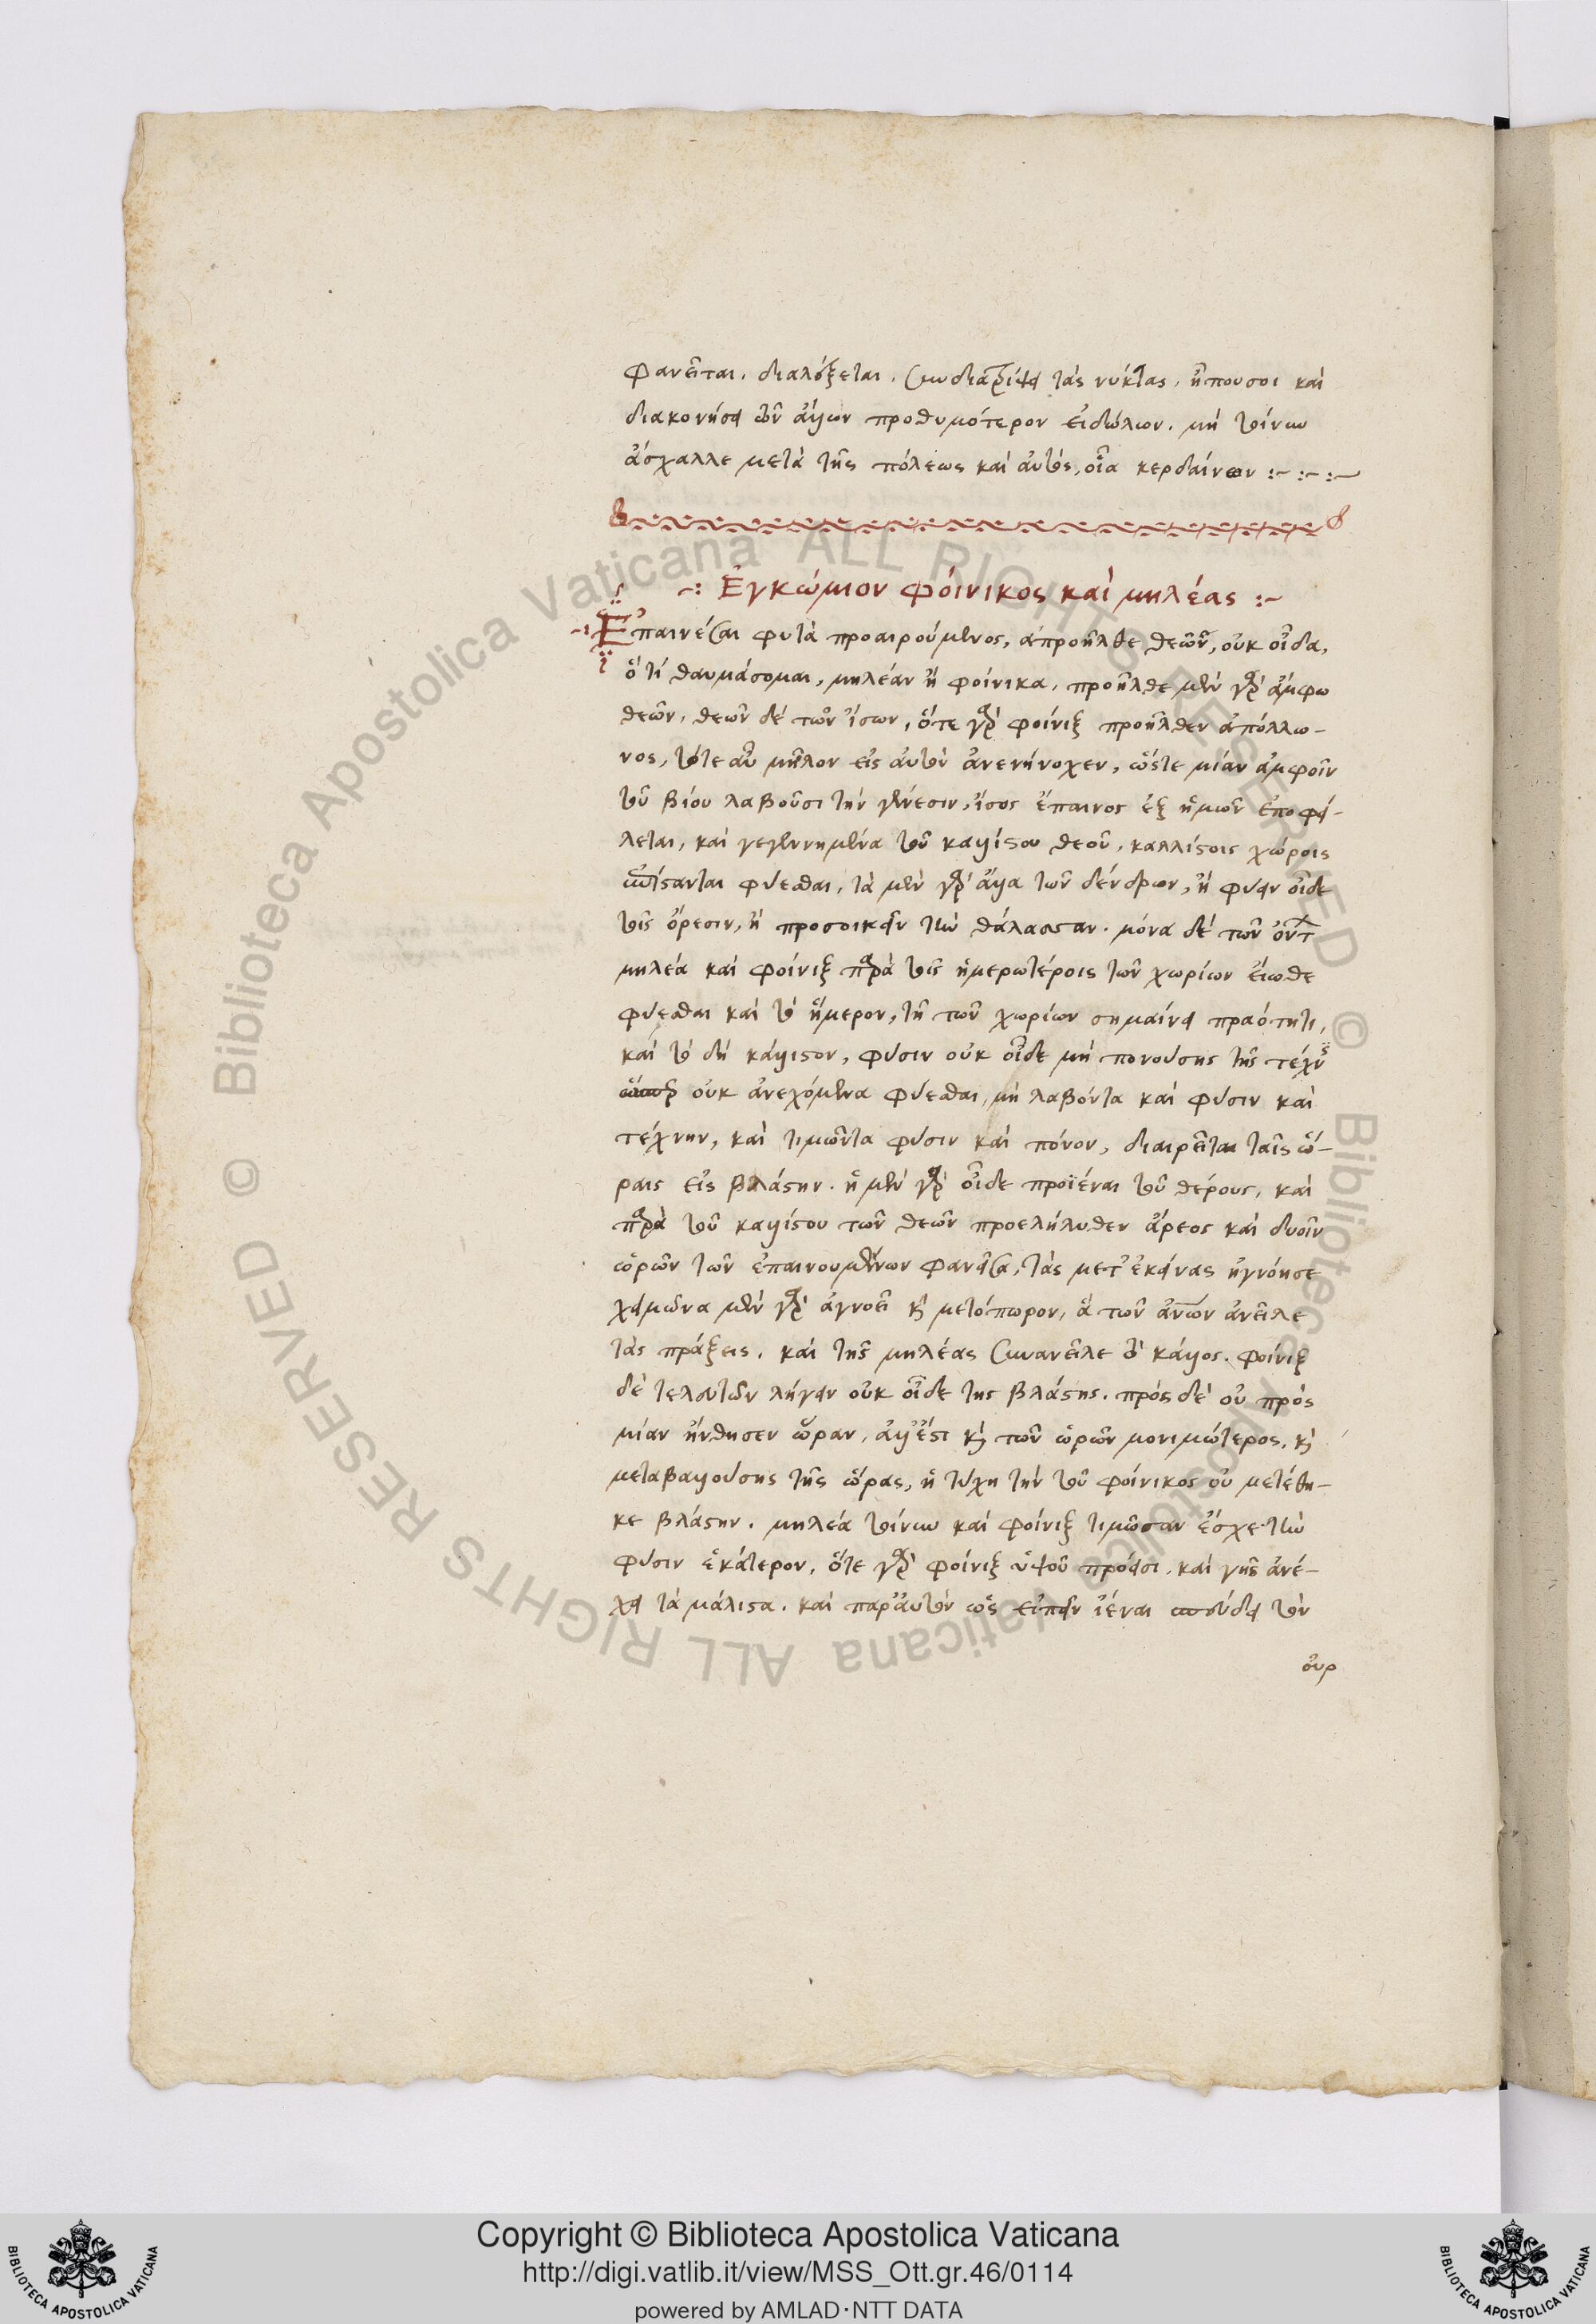 φανεῖται. διαλέξεται. συνδιατρίψει τὰς νύκτας. ἥπουσοι καὶ
διακονήσει τῶν ἄλλων προθυμότερον εἰδώλων. μὴ τοίνυν
ἄσχαλλε μετὰ τῆς πόλεως καὶ αὐτός, οἷα κερδαίνων :~ :~ :~
~: Ἐγκώμιον φοίνικος καὶ μηλέας :~
Ἐπαινέσαι φυτὰ προαιρούμενος, ἃ προῆλθε θεῶν, οὐκ οἶδα,
ὅ τί θαυμάσομαι, μηλέαν ἢ φοίνικα. προῆλθε μὲν γὰρ ἄμφω
θεῶν, θεῶν δὲ τῶν ἴσων, ὅτε γὰρ φοίνιξ προῆλθεν ἀπόλλω-
νος, τότε αὖ μῆλον εἰς αὐτὸν ἀνενήνοχεν, ὥστε μίαν ἀμφοῖν
τοῦ βίου λαβοῦσι τὴν γένεσιν, ἴσος ἔπαινος ἐξ ἡμῶν ἐποφεί-
λεται, καὶ γεγεννημένα τοῦ καλλίστου θεοῦ, καλλίστοις χώροις
φύεσθαι, τὰ μὲν γὰρ ἄλλα τῶν δένδρων, ἢ φύειν οἶδε
τοῖς ὄρεσιν, ἢ προσοικεῖν τὴν θάλασσαν. μόνα δὲ τῶν ὄντων
μηλέα καὶ φοίνιξ παρὰ τοῖς ἡμερωτέροις τῶν χωρίων εἴωθε
φύεσθαι καὶ τὸ ἥμερον, τῇ τῶν χωρίων σημαίνει πραότητι,
καὶ τὸ δὴ κάλλιστον, φύσιν οὐκ οἶδε μὴ πονούσης τῆς τέχνης
ὥσπερ οὐκ ἀνεχόμενα φύεσθαι, μὴ λαβόντα καὶ φύσιν καὶ
τέχνην, καὶ τιμῶντα φύσιν καὶ πόνον, διαιρεῖται ταῖς ὥ-
ραις εἰς βλάστην. ἡ μὲν γὰρ οἶδε προϊέναι τοῦ θέρους, καὶ
παρὰ τοῦ καλλίστου τῶν θεῶν προελήλυθεν ἄρεος καὶ δυοῖν
ὡρῶν τῶν ἐπαινουμένων φανεῖσα, τὰς μετ' ἐκείνας ἠγνόησε
χειμῶνα μὲν γὰρ ἀγνοεῖ καὶ μετόπωρον, ἃ τῶν ἀνθρώπων ἀνεῖλε
τὰς πράξεις. καὶ τῆς μηλέας συνανεῖλε τὸ κάλλος. φοίνιξ
δὲ τελευτῶν λήγειν οὐκ οἶδε τῆς βλάστης. πρὸς δὲ οὐ πρὸς
μίαν ἤνθησεν ὥραν, ἀλλ' ἔστι καὶ τῶν ὡρῶν μονιμώτερος, καὶ
μεταβαλλούσης τῆς ὥρας, ἡ τύχη τὴν τοῦ φοίνικος οὐ μετέθη-
κε βλάστην. μηλέα τοίνυν καὶ φοίνιξ τιμῶσαν ἔσχε τὴν
φύσιν ἑκάτερον, ὅτε γὰρ φοίνιξ ὑψοῦ πρόεισι, καὶ γῆς ἀνέ-
χει τὰ μάλιστα. καὶ παρ' αὐτὸν ὡς εἰπεῖν ἰέναι σπεύδει τὸν
οὐρ
Copyright © Biblioteca Apostolica Vaticana
http://digi.vatlib.it/view/MSS_Ott.gr.46/0114
powered by AMLAD·NTT DATA
BIBLIOTECA APOSTOLICA VATICANA
BIBLIOTECA APOSTOLICA VATICANA
© Biblioteca Apostolica Vaticana ALL RIGHTS RESERVED
© Biblioteca Apostolica Vaticana ALL RIGHTS RESERVED